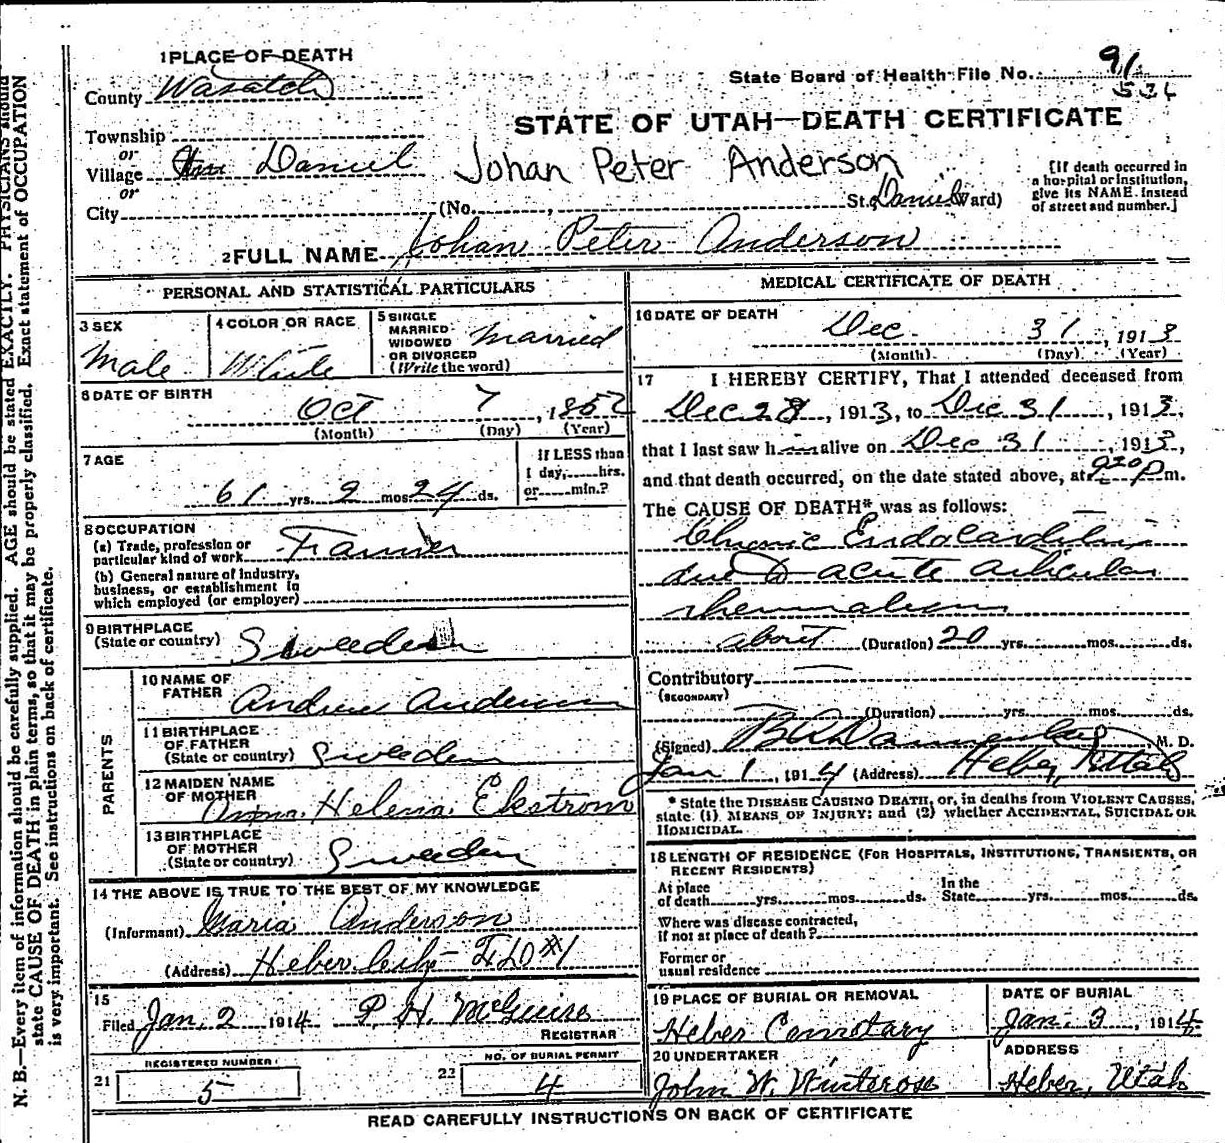 1 PLACE OF DEATH
State Board of Health File No. 91
County Wasatch
STATE OF UTAH—DEATH CERTIFICATE
Township
or
Village Daniel
Johan Peter Anderson
[If death occurred in a hospital or institution, give its NAME instead of street and number.]
or
City (No. , St. Daniel Ward)
2 FULL NAME Johan Peter Anderson
PERSONAL AND STATISTICAL PARTICULARS
3 SEX
Male
4 COLOR OR RACE
White
5 SINGLE MARRIED WIDOWED OR DIVORCED (Write the word)
Married
6 DATE OF BIRTH
Oct 7, 1852
(Month) (Day) (Year)
7 AGE
61 yrs. 2 mos. 24 ds.
If LESS than 1 day, hrs. or min.?
8 OCCUPATION
(a) Trade, profession or particular kind of work Farmer
(b) General nature of industry, business, or establishment in which employed (or employer)
9 BIRTHPLACE
(State or country) Sweden
PARENTS
10 NAME OF FATHER Andrew Anderson
11 BIRTHPLACE OF FATHER
(State or country) Sweden
12 MAIDEN NAME OF MOTHER Anna Helena Ekstrom
13 BIRTHPLACE OF MOTHER
(State or country) Sweden
14 THE ABOVE IS TRUE TO THE BEST OF MY KNOWLEDGE
(Informant) Maria Anderson
(Address) Heber City
15
Filed Jan. 2 1914 P. H. McGuire
REGISTRAR
21 REGISTERED NUMBER
5
22 NO. OF BURIAL PERMIT
4
MEDICAL CERTIFICATE OF DEATH
16 DATE OF DEATH
Dec 31, 1913
(Month) (Day) (Year)
17 I HEREBY CERTIFY, That I attended deceased from
Dec 28, 1913, to Dec 31, 1913,
that I last saw him alive on Dec 31, 1913,
and that death occurred, on the date stated above, at 9 20 p m.
The CAUSE OF DEATH* was as follows:
Chronic Endocarditis
due to acute articular
rheumatism
about (Duration) 20 yrs. mos. ds.
Contributory
(SECONDARY)
(Duration) yrs. mos. ds.
(Signed) M. D.
Jan 1, 1914 (Address) Heber, Utah
* State the DISEASE CAUSING DEATH, or, in deaths from VIOLENT CAUSES,
state (1) MEANS OF INJURY; and (2) whether ACCIDENTAL, SUICIDAL OR
HOMICIDAL.
18 LENGTH OF RESIDENCE (FOR HOSPITALS, INSTITUTIONS, TRANSIENTS, OR
RECENT RESIDENTS)
At place of death yrs. mos. ds. In the State yrs. mos. ds.
Where was disease contracted,
if not at place of death?
Former or
usual residence
19 PLACE OF BURIAL OR REMOVAL
Heber Cemetary
DATE OF BURIAL
Jan. 3, 1914
20 UNDERTAKER
John W. Winterose
ADDRESS
Heber, Utah
READ CAREFULLY INSTRUCTIONS ON BACK OF CERTIFICATE
N. B.—Every item of information should be carefully supplied. AGE should be stated EXACTLY. PHYSICIANS should
state CAUSE OF DEATH in plain terms, so that it may be properly classified. Exact statement of OCCUPATION
is very important. See instructions on back of certificate.